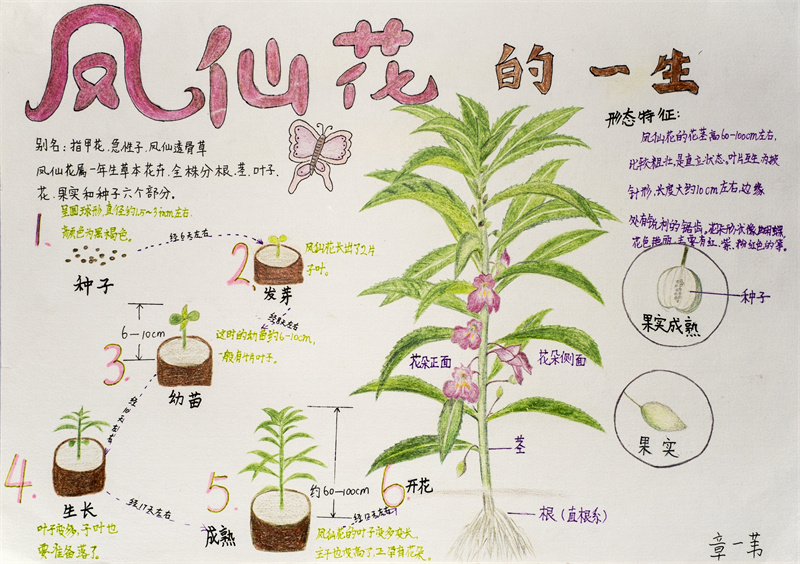 凤仙花的一生
别名：指甲花、急性子、凤仙透骨草
凤仙花属一年生草本花卉，全株分根、茎、叶子、
花、果实和种子六个部分。
形态特征：
凤仙花的花茎高60-100cm左右，
比较粗壮，是直立状态，叶片互生，为披
针形，长度大约10cm左右，边缘
处有锐利的锯齿，花朵形状像蝴蝶，
花色艳丽，主要有红、紫、粉红色的等。
1.
呈圆球形，直径约1.5~3mm左右
颜色为黑褐色。
种子
经6天左右
2.
凤仙花长出了2片
子叶。
发芽
经8天左右
3.
6-10cm
这时的幼苗约6-10cm，
幼苗
4.
生长
叶子变多，子叶也
要准备落了。
经17天左右
5.
成熟
约60-100cm
凤仙花的叶子变多变长，
经12天左右
6.开花
花朵正面
花朵侧面
茎
根（直根系）
种子
果实成熟
果实
章一苇